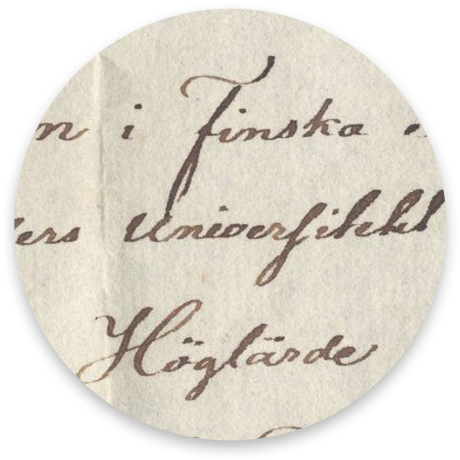 n i Finska
ers Universitetet
Höglärde